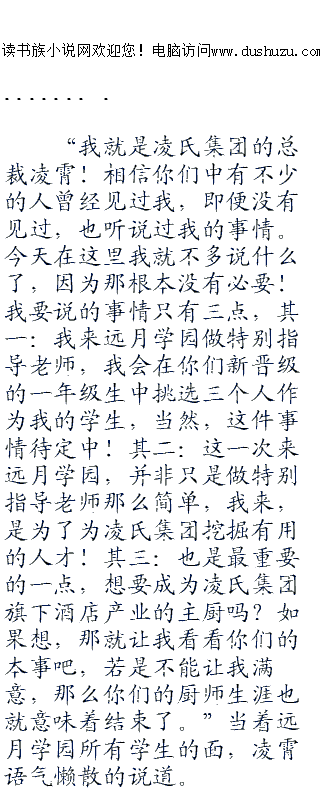 读书族小说网欢迎您！电脑访问www.dushuzu.com
........ .
“我就是凌氏集团的总
裁凌霄！相信你们中有不少
的人曾经见过我，即便没有
见过，也听说过我的事情。
今天在这里我就不多说什么
了，因为那根本没有必要！
我要说的事情只有三点，其
一：我来远月学园做特别指
导老师，我会在你们新晋级
的一年级生中挑选三个人作
为我的学生，当然，这件事
情待定中！其二：这一次来
远月学园，并非只是做特别
指导老师那么简单，我来，
是为了为凌氏集团挖掘有用
的人才！其三：也是最重要
的一点，想要成为凌氏集团
旗下酒店产业的主厨吗？如
果想，那就让我看看你们的
本事吧，若是不能让我满
意，那么你们的厨师生涯也
就意味着结束了。”当着远
月学园所有学生的面，凌霄
语气懒散的说道。